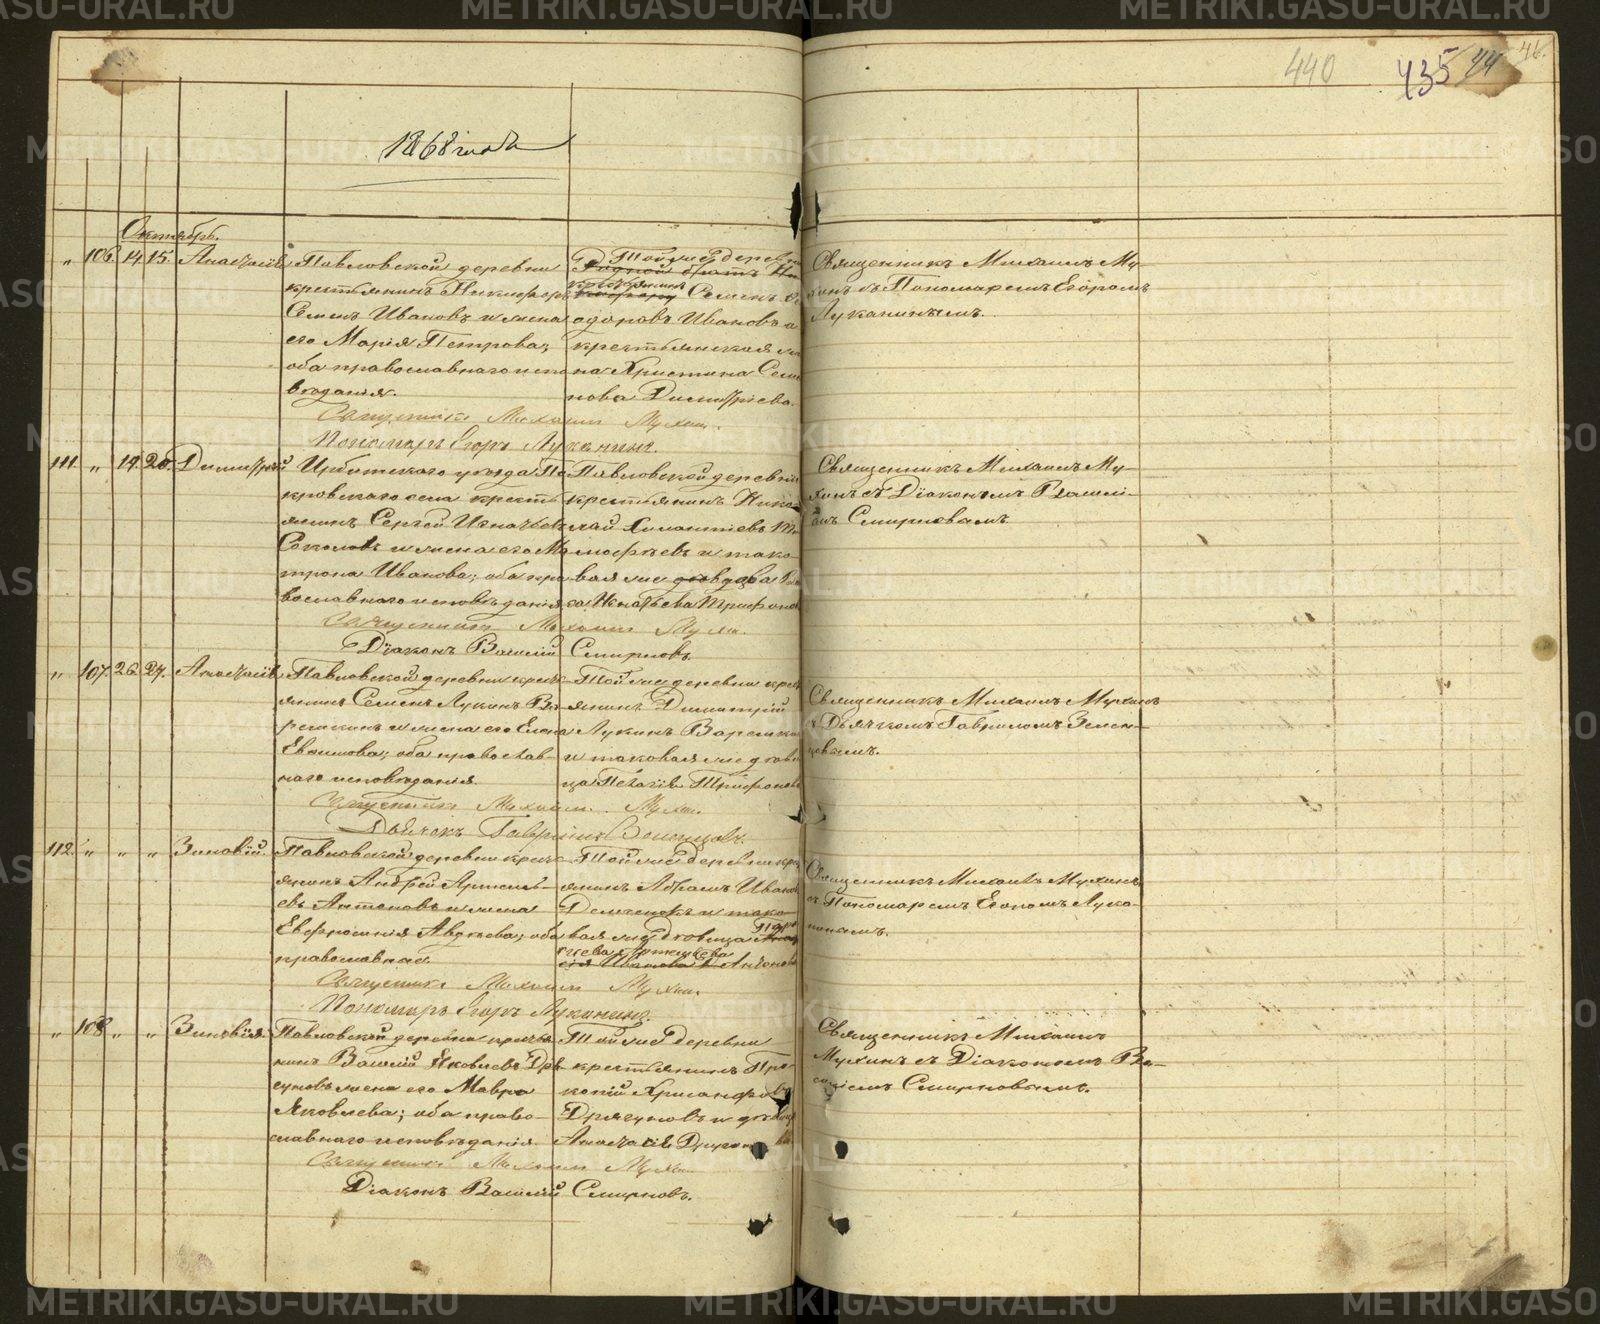 METRIKI.GASO-URAL.RU
440 435 44 46.
1868 года
Октябрь.
„ 106. 14. 15. Анастасія Павловской деревни
крестьянинъ Никифоръ
Семенъ Ивановъ и жена
его Марія Петрова;
оба православнаго испо
вѣданія.
Той же деревни
Родной братъ
крестьянинъ
Семенъ
Ивановъ и
крестьянская
на Христина Семе
нова Димитріева.
Священникъ Михаилъ Му-
хинъ съ Пономаремъ Егоромъ
Луканинымъ.
Священникъ Михаилъ Мухин.
Пономарь Егоръ Луканинъ.
111. „ 19. 20. Димитрій Ирбитского уѣзда По
кровскаго села кресть
янинъ Сергей Игнатьевъ
Соколовъ и жена его Ма
трона Иванова; оба пра
вославнаго исповѣданія
Павловской деревни
крестьянинъ Нико
лай
мофѣевъ и тако
вая же вдова
Игнатьева Трифонова
Священникъ Михаилъ Му-
хинъ съ Діакономъ Васили-
емъ Смирновамъ.
Священникъ Михаилъ Мухи.
Діаконъ Василій Смирновъ.
„ 107. 26. 27. Анастасія Павловской деревни крес-
янинъ Семенъ Лукинъ Ва-
ремкинъ и жена его Елена
Евдокимова; оба православ-
наго исповѣданія.
Той же деревни крест
янинъ Димитрій
Лукинъ Варемкин
и таковая же дѣви
ца Пелагія Трифонова
Священникъ Михаилъ Мухинъ
съ Дьячкомъ Гавриломъ Зелен-
цовымъ.
Священникъ Михаилъ Мухин.
Дьячокъ Гаврилъ Зеленцовъ.
112. „ „ „ Зиновій. Павловской деревни крес-
янинъ Андрей
евъ Антоновъ и жена
Евфросинія Авдѣева; оба
православнае.
Той же деревни кре
янинъ Абрамъ Иванов
и тако
вая же дѣвица
Иванова Антонова
Священникъ Михаилъ Мухинъ
съ Пономаремъ Егоромъ Лука-
нинамъ.
Священникъ Михаилъ Мухин.
Пономарь Егоръ Луканинъ.
„ 108. „ „ Зиновія. Павловской деревни кресть
нинъ Василій Яковлевъ Дря
гуновъ жена его Мавра
Яковлева; оба право-
славнаго исповѣданія
Той же деревни
крестьянинъ Про-
копій Хрисанфовъ
Дрягуновъ и дѣвица
Анастасія
Священникъ Михаилъ
Мухинъ съ Діакономъ Ва-
силіемъ Смирновымъ.
Священникъ Михаилъ Мухин
Діаконъ Василій Смирновъ.